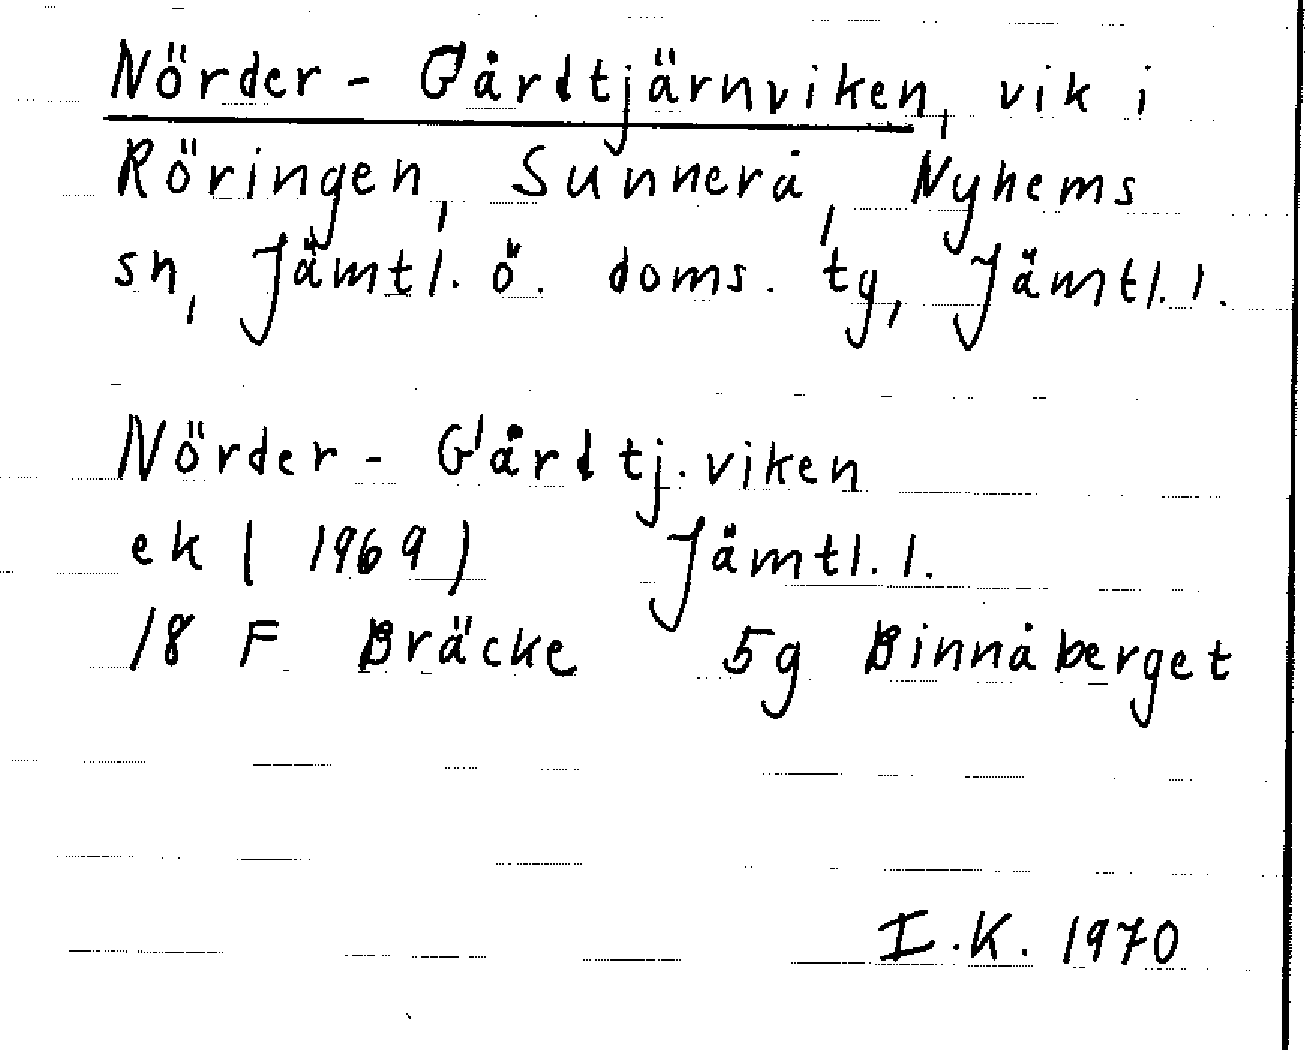 Nörder - Gårdtjärnviken, vik i
Röringen, Sunnerå, Nyhems
sn, Jämtl. ö. doms. tg, Jämtl. l.
Nörder - Gårdtj.viken
ek ( 1969 ) Jämtl. l.
18 F Bräcke 5g Binnåberget
I.K. 1970